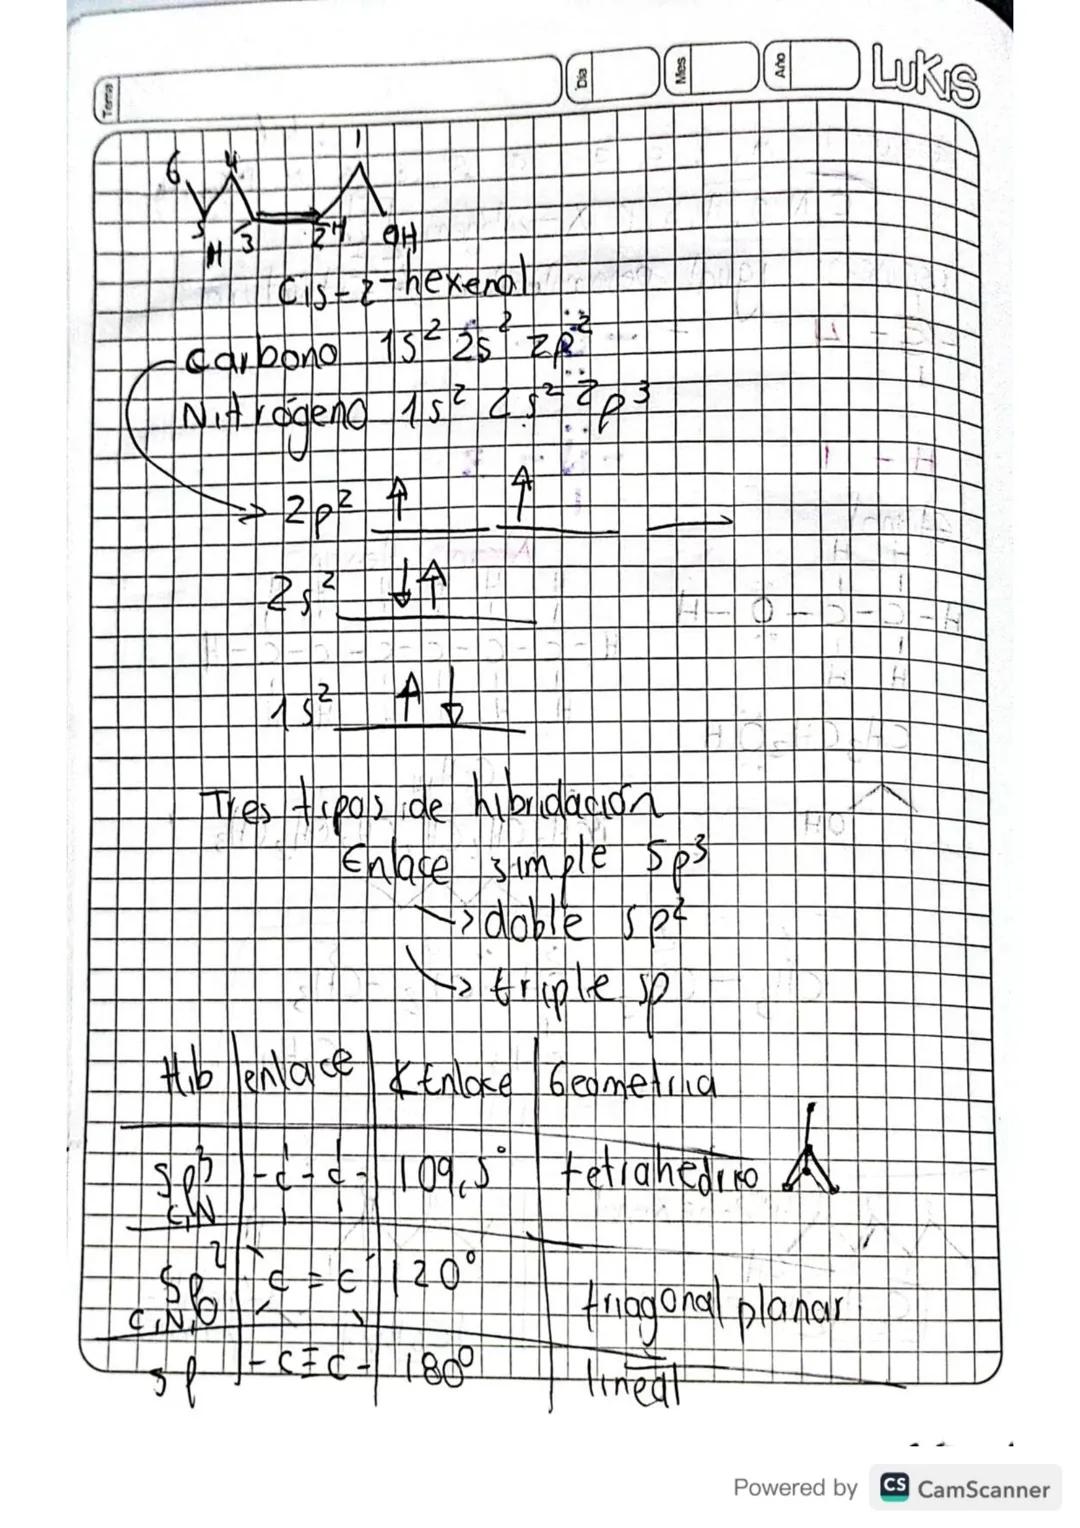 Tema Día Mes Año LUKIS
6 4 1
5 3 2 H OH
H
Cis-2-hexenol
Carbono 1s² 2s² 2p²
Nitrógeno 1s² 2s² 2p³
2p² ↑ ↑
2s² ↓↑
1s² ↑↓
Tres tipos de hibridación
Enlace simple sp³
→ doble sp²
→ triple sp
Hib enlace ∢Enlace Geometria
sp³ -C-C- 109,5° tetrahedrico
C,N
sp² C=C 120° trigonal planar
C,N,O
sp -C≡C- 180° lineal
Powered by CS CamScanner